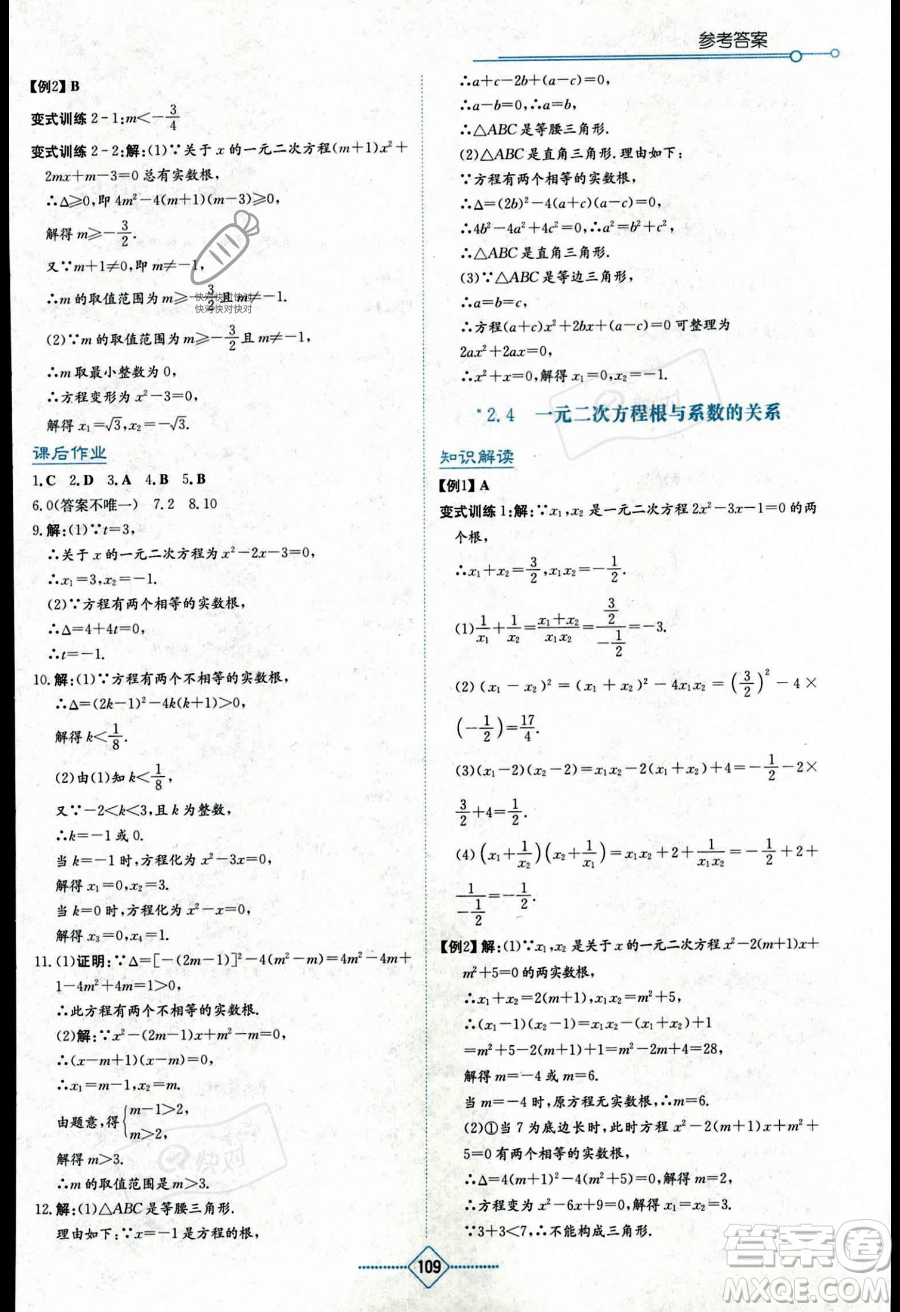 参考答案
【例2】B
变式训练 2-1:m<-3/4
变式训练 2-2:解:(1)∵关于 x 的一元二次方程(m+1)x²+
2mx+m-3=0 总有实数根,
∴Δ≥0,即 4m²-4(m+1)(m-3)≥0,
解得 m≥-3/2.
又∵m+1≠0,即 m≠-1,
∴m 的取值范围为 m≥-3/2且 m≠-1.
快对快对快对
快对快对快对
(2)∵m 的取值范围为 m≥-3/2且 m≠-1,
∴m 取最小整数为 0,
∴方程变形为 x²-3=0,
解得 x₁=√3,x₂=-√3.
课后作业
1.C 2.D 3.A 4.B 5.B
6.0(答案不唯一) 7.2 8.10
9.解:(1)∵t=3,
∴关于 x 的一元二次方程为 x²-2x-3=0,
∴x₁=3,x₂=-1.
(2)∵方程有两个相等的实数根,
∴Δ=4+4t=0,
∴t=-1.
10.解:(1)∵方程有两个不相等的实数根,
∴Δ=(2k-1)²-4k(k+1)>0,
解得 k<1/8.
(2)由(1)知 k<1/8,
又∵-2<k<3,且 k 为整数,
∴k=-1 或 0.
当 k=-1 时,方程化为 x²-3x=0,
解得 x₁=0,x₂=3.
当 k=0 时,方程化为 x²-x=0,
解得 x₃=0,x₄=1.
11.(1)证明:∵Δ=[-(2m-1)]²-4(m²-m)=4m²-4m+
1-4m²+4m=1>0,
∴此方程有两个不相等的实数根.
(2)解:∵x²-(2m-1)x+m²-m=0,
∴(x-m+1)(x-m)=0,
∴x₁=m-1,x₂=m.
由题意,得{m-1>2,
m>2,
解得 m>3.
∴m 的取值范围是 m>3.
12.解:(1)△ABC 是等腰三角形.
理由如下:∵x=-1 是方程的根,
∴a+c-2b+(a-c)=0,
∴a-b=0,∴a=b,
∴△ABC 是等腰三角形.
(2)△ABC 是直角三角形.理由如下:
∵方程有两个相等的实数根,
∴Δ=(2b)²-4(a+c)(a-c)=0,
∴4b²-4a²+4c²=0,∴a²=b²+c²,
∴△ABC 是直角三角形.
(3)∵△ABC 是等边三角形,
∴a=b=c,
∴方程(a+c)x²+2bx+(a-c)=0 可整理为
2ax²+2ax=0,
∴x²+x=0,解得 x₁=0,x₂=-1.
*2.4 一元二次方程根与系数的关系
知识解读
【例1】A
变式训练 1:解:∵x₁,x₂ 是一元二次方程 2x²-3x-1=0 的两
个根,
∴x₁+x₂=3/2,x₁x₂=-1/2.
(1)1/x₁+1/x₂=(x₁+x₂)/(x₁x₂)=(3/2)/(-1/2)=-3.
(2)(x₁-x₂)²=(x₁+x₂)²-4x₁x₂=(3/2)²-4×
(-1/2)=17/4.
(3)(x₁-2)(x₂-2)=x₁x₂-2(x₁+x₂)+4=-1/2-2×
3/2+4=1/2.
(4)(x₁+1/x₂)(x₂+1/x₁)=x₁x₂+2+1/(x₁x₂)=-1/2+2+
1/(-1/2)=-1/2.
【例2】解:(1)∵x₁,x₂ 是关于 x 的一元二次方程 x²-2(m+1)x+
m²+5=0 的两实数根,
∴x₁+x₂=2(m+1),x₁x₂=m²+5,
∴(x₁-1)(x₂-1)=x₁x₂-(x₁+x₂)+1
=m²+5-2(m+1)+1=m²-2m+4=28,
解得 m=-4 或 m=6.
当 m=-4 时,原方程无实数根,∴m=6.
(2)①当 7 为底边长时,此时方程 x²-2(m+1)x+m²+
5=0 有两个相等的实数根,
∴Δ=4(m+1)²-4(m²+5)=0,解得 m=2,
∴方程变为 x²-6x+9=0,解得 x₁=x₂=3.
∵3+3<7,∴不能构成三角形.
快对
109
答案圈
MXQE.COM